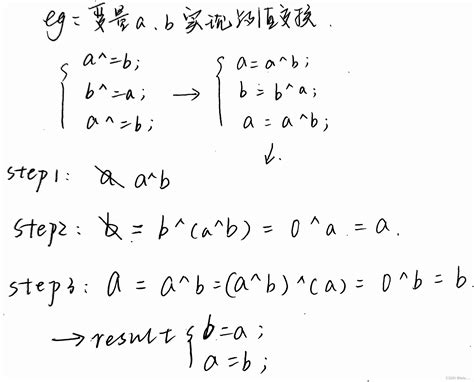 eg: 变量a、b实现的值交换.
{ a^=b; { a=a^b;
b^=a; → b=b^a;
a^=b; a=a^b;
↓.
step1: a a^b
step2: b = b^(a^b) = 0^a = a.
step3: a = a^b=(a^b)^(a) = 0^b = b.
→result { b=a;
a=b;